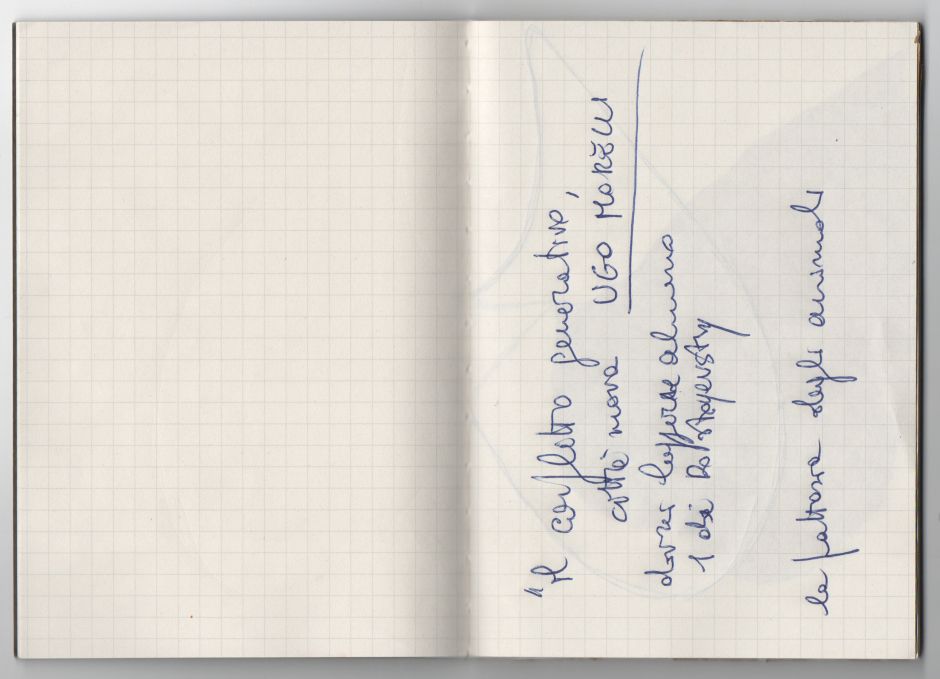 "Il conflitto generativo,
città nuova UGO MORELLI
dovrei leggerne almeno
1 di Dostoyevsky
la fattoria degli animali